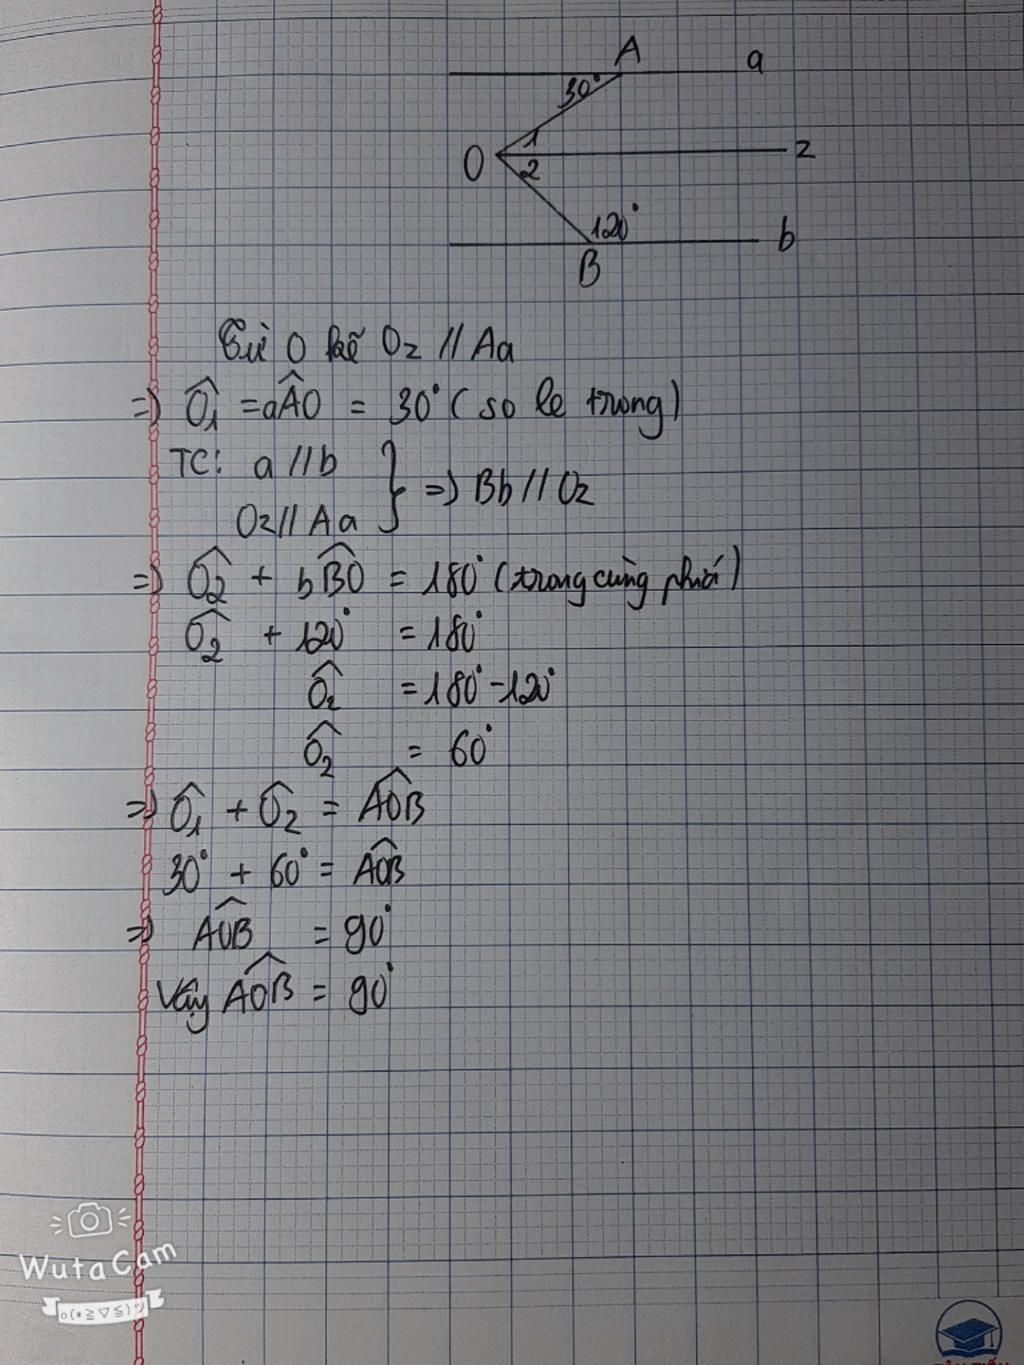 A
a
30°
1
O
2
z
120°
b
B
Từ O kẽ Oz // Aa
=) Ô1 = aÂO = 30° (so le trong)
TC: a // b
Oz // Aa } =) Bb // Oz
=) Ô2 + bB̂O = 180° (trong cùng phía)
Ô2 + 120° = 180°
Ô2 = 180° - 120°
Ô2 = 60°
=) Ô1 + Ô2 = AÔB
30° + 60° = AÔB
=) AÔB = 90°
Vậy AÔB = 90°
WutaCam
o(*≧▽≦)ツ